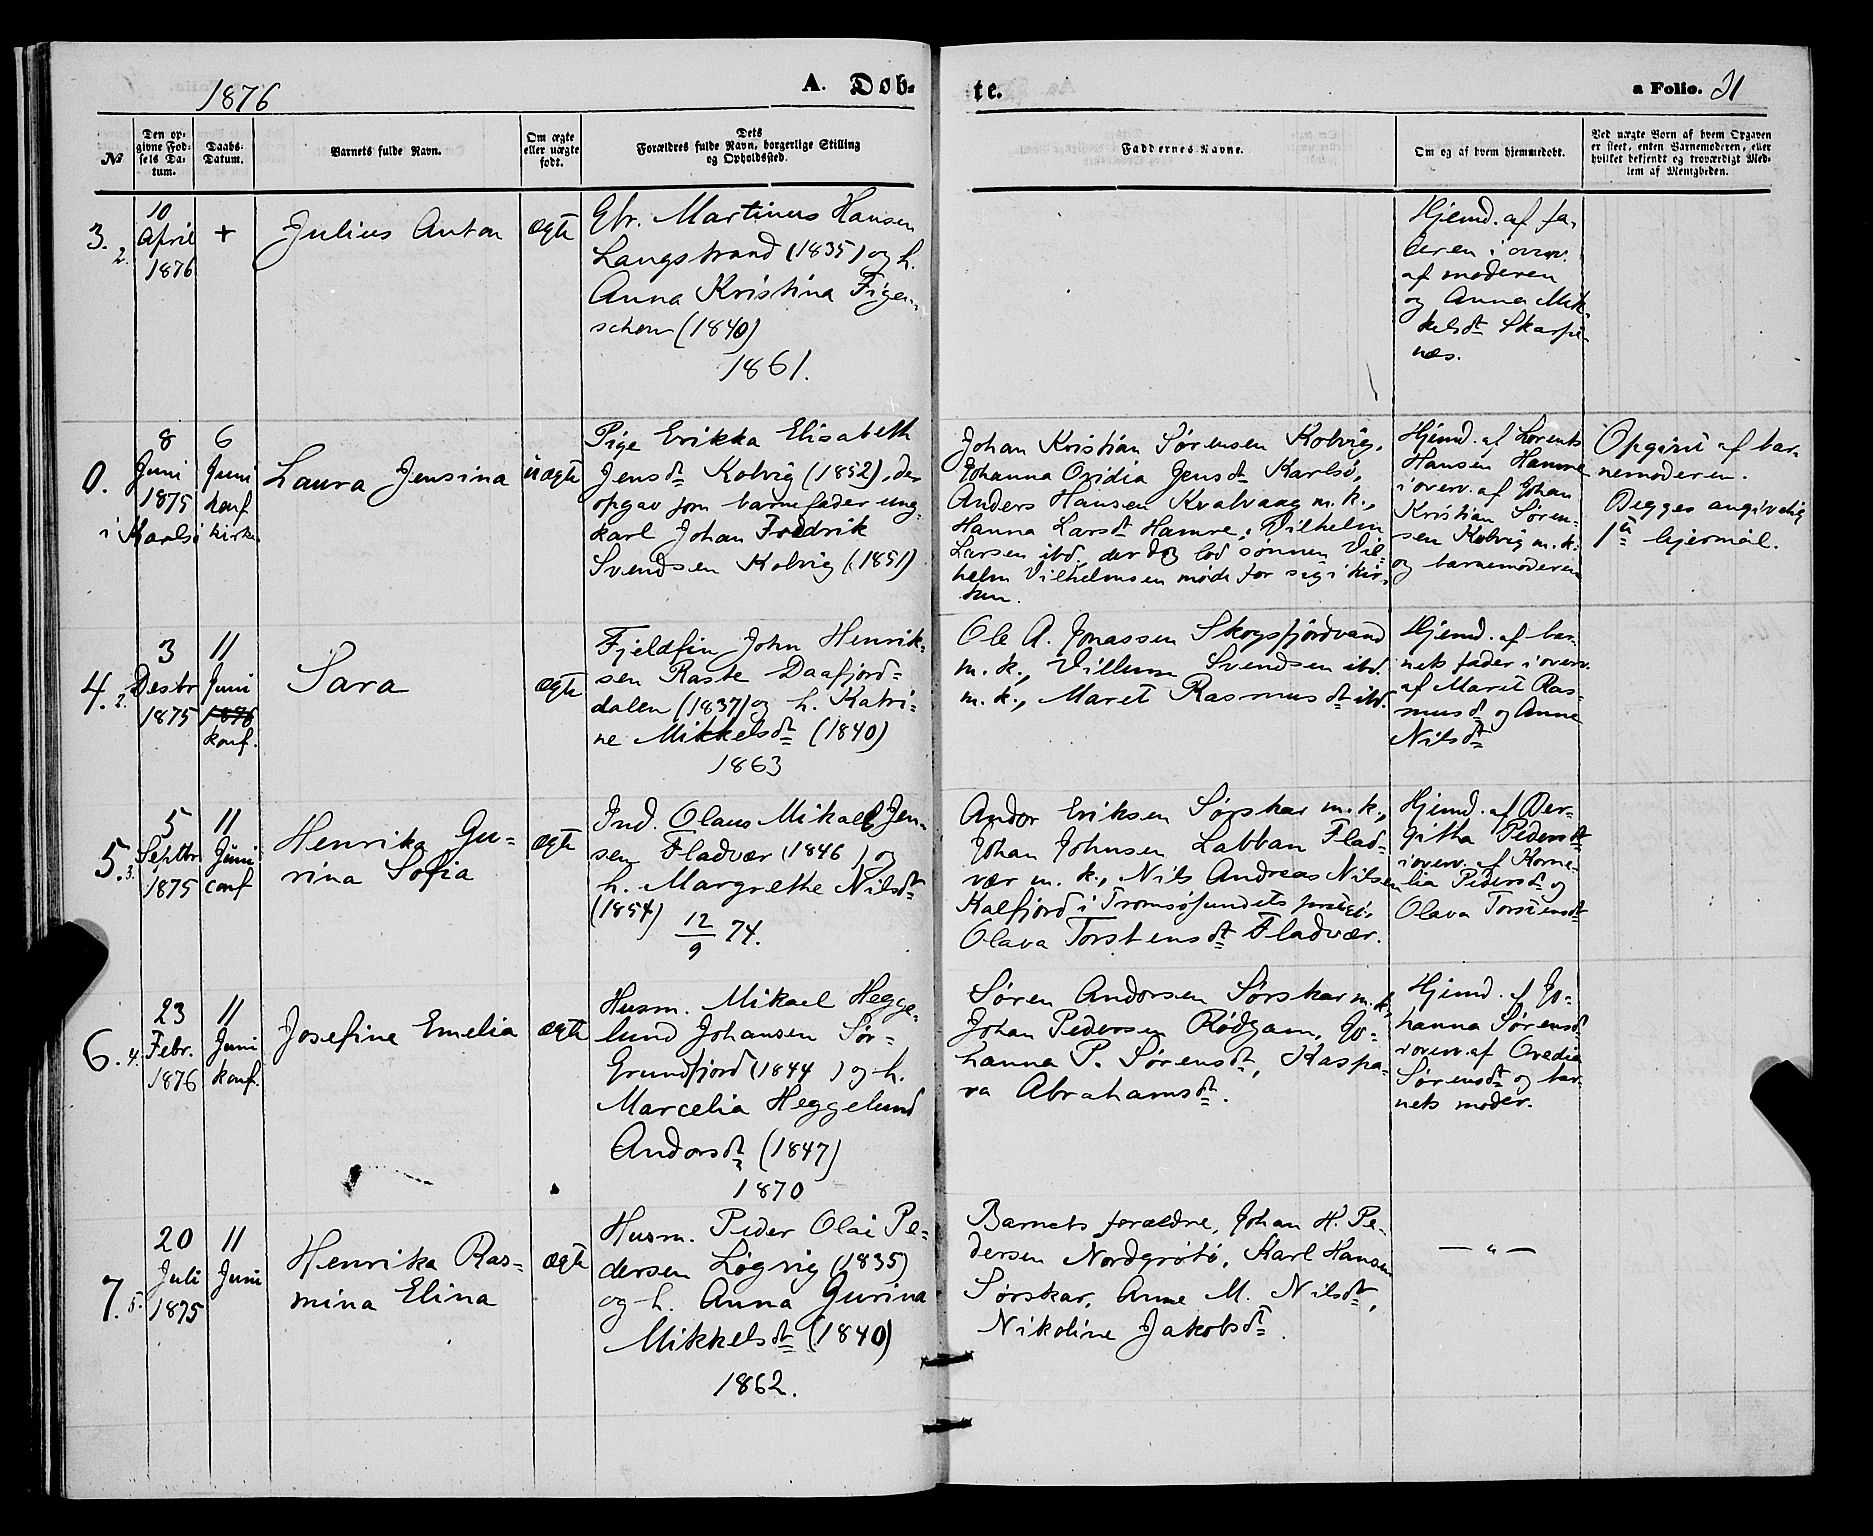 1876
A. Døb-
te.
a Folio. 21
№
Den op-
givne Fød-
sels Da-
tum.
Daabs-
Datum.
Barnets fulde Navn.
Om ægte
eller uægte
født.
Dets
Forældres fulde Navn, borgerlige Stilling
og Opholdssted.
Faddernes Navne.
Om og af hvem hjemmedøbt.
Ved uægte Børn af hvem Opgaven
er skeet, enten Barnemoderen, eller
hvilket bekjendt og troværdigt Med-
lem af Menigheden.
3. 2.
10
April
1876
+
Julius Anton
ægte
Gbr. Martinus Hansen
Langstrand (1835) og h.
Anna Kristina Figen-
schou (1840)
1861.
Hjemd. af fa-
deren i overv.
af moderen
og Anna Mik-
kelsdt Skarpe-
næs.
0.
8
Juni
1875
i Karlsø
6
Juni
konf.
kirke
Laura Jensina
uægte
Pige Erikka Elisabeth
Jensdt Kolvig (1852), der
opgav som barnefader ung-
karl Johan Fredrik
Svendsen Kolvig (1851)
Johan Kristian Sørensen Kolvig,
Johanna Ovidia Jensdt Karlsø,
Anders Hansen Kvalvaag m. k.,
Hanna Larsdt Hamre, Vilhelm
Larsen ibd, der dog lod sønnen Vil-
helm Vilhelmsen møde for sig i kir-
ken.
Hjemd. af Lorents
Hansen Hamre
i overv. af Johan
Kristian Søren-
sen Kolvig m. k.
og barnemoderen
Opgivet af bar-
nemoderen.
Begges angivelig
1te leiermål.
4. 2.
3
Desbr
1875
11
Juni
1876
konf.
Sara
ægte
Fjeldfin John Henrik-
sen Raste Daafjord-
dalen (1837) og h. Katri-
ne Mikkelsdt (1840)
1863
Ole A. Jonassen Skogsfjordvand
m. k., Villum Svendsen ibd.
m. k., Maret Rasmusdt ibd.
Hjemd. af bar-
nets fader i overv.
af Marit Ras-
musdt og Anne
Nilsdt
5. 3.
5
Septbr
1875
11
Juni
conf
Henrika Gu-
rina Sofia
ægte
Ind. Olaus Mikael Jen-
sen Fladvær (1846) og
h. Margrethe Nilsdt
(1854) 12/9 74.
Andor Eriksen Sørskar m. k.,
Johan Johnsen Labban Flad-
vær m. k., Nils Andreas Nilsen
Kalfjord i Tromsøsundets præstej.,
Olava Torstensdt Fladvær.
Hjemd. af Ber-
githa Pedersdt
i overv. af Korne-
lia Pedersdt og
Olava Torstensdt
6. 4.
23
Febr.
1876
11
Juni
konf.
Josefine Emelia
ægte
Husm. Mikael Hegge-
lund Johansen Sør-
Grundfjord (1844) og h.
Marcelia Heggelund
Andorsdt (1847)
1870
Søren Andorsen Sørskar m. k,
Johan Pedersen Rødgam, Jo-
hanna P. Sørensdt, Kaspa-
ra Abrahamsdt.
Hjemd. af Jo-
hanna Sørensdt
i overv. af Ovedia
Sørensdt og bar-
nets moder.
7. 5.
20
Juli
1875
11
Juni
Henrika Ras-
mina Elina
ægte
Husm. Peder Olai Pe-
dersen Løgvig (1835)
og h. Anna Gurina
Mikkelsdt (1840)
1862.
Barnets forældre, Johan H. Pe-
dersen Nordgrøtø, Karl Hansen
Sørskar, Anne M. Nilsdt,
Nikoline Jakobsdt.
— " —